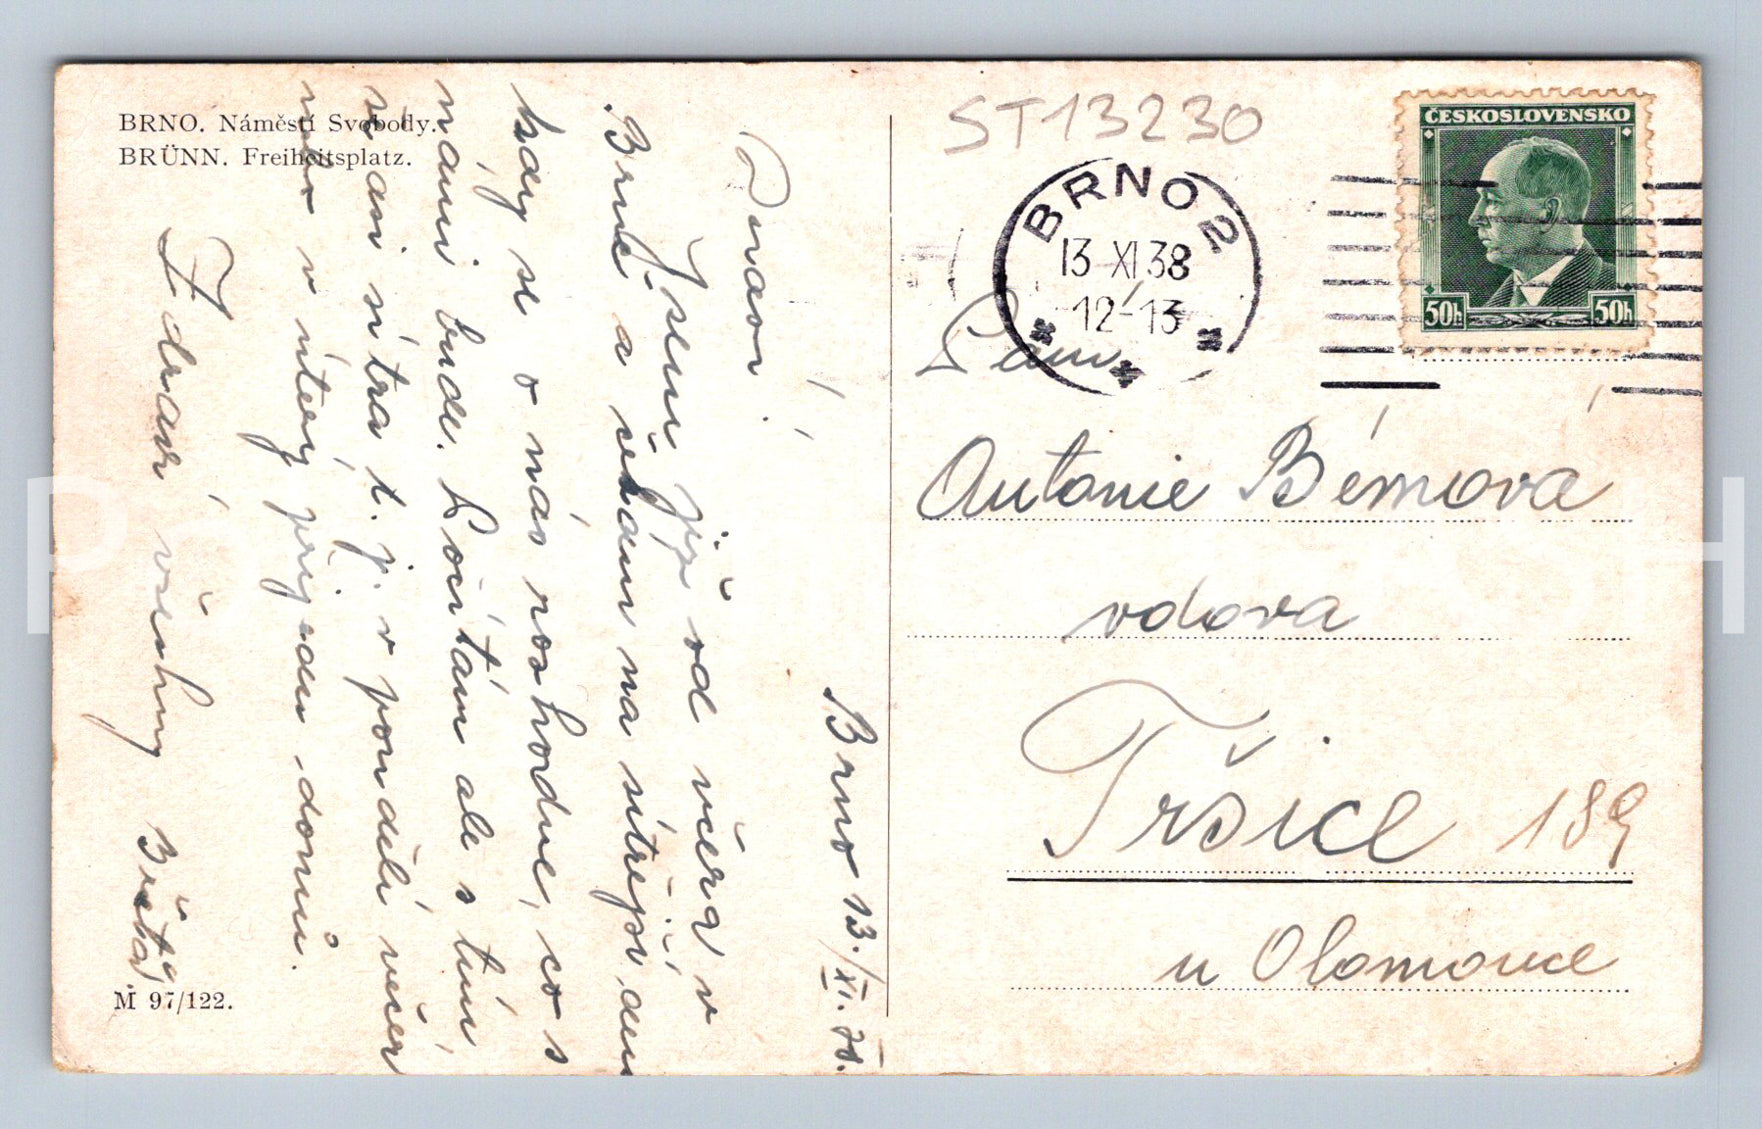 BRNO. Náměstí Svobody.
BRÜNN. Freiheitsplatz.
Brno 13./XI. 38.
Drazí!
Jsem již od včera v
Brně a čekám na zítřejší den
kdy se o nás rozhodne, co s
námi bude. Počítám ale s tím,
že ani zítra t. j. v pondělí večer
nebo v úterý přijedu domů.
Zdraví všechny Břeťa
M 97/122.
ST13230
BRNO 2
13 XI 38
12-13
ČESKOSLOVENSKO
50h 50h
Paní
Antonie Bémová
vdova
Tršice 189
u Olomouce